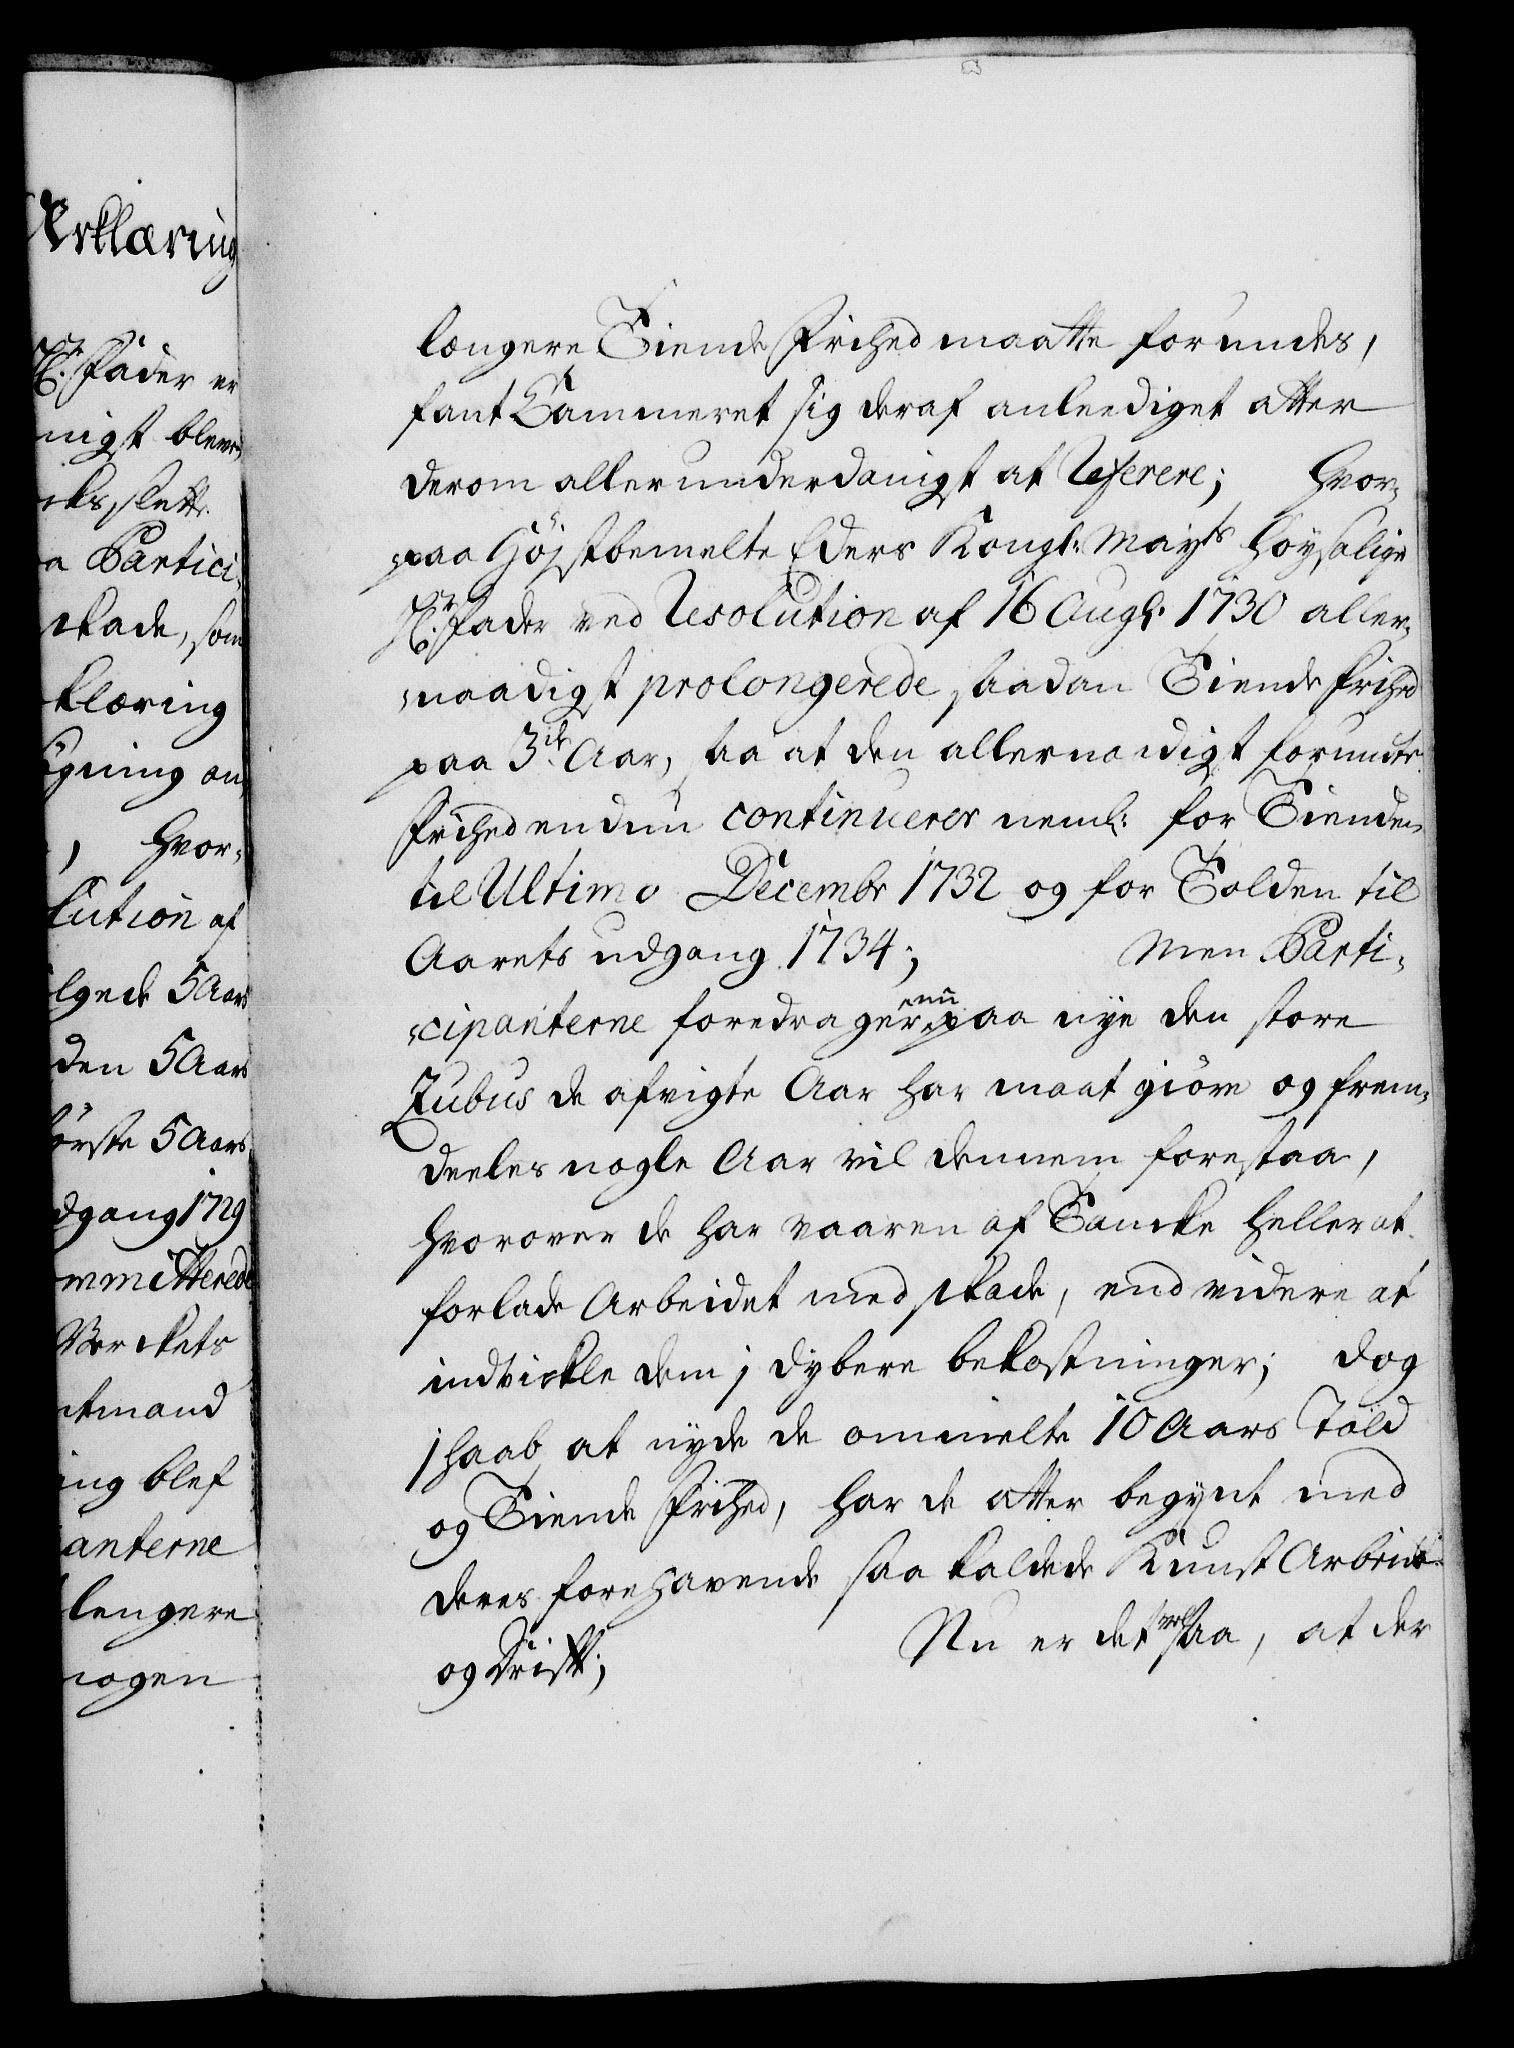 Erklæring
Hr. Fader er
nigst blewe
cks, slette
a Partici-
skade, som
klæring
gning an
, Hvor-
lution af
lgede 5 Aars
den 5 Aars
örste 5 Aars
dgang 1729
ommitterede
Werckets
tmand
ing blef
anterne
lengere
nogen
længere Tiende Frihed maatte forundes,
fant Cammeret sig deraf anleediget atter
derom allerunderdanigst at Referere; Hvor-
paa Höjstbemelte Eders Kongl: Mayts Höysalige
Hr. Fader ved Resolution af 16 Aug: 1730 aller-
naadigst prolongerede saadan Tiende Frihed
paa 3de Aar, saa at den allernaadigst forundte
Frihed endnu continuerer neml: for Tienden
til Ultimo Decembr 1732 og for Tolden til
Aarets udgang 1734; Men Parti-
cipanterne foredrager nu paa nye den store
Zubus de afvigte Aar har maat giöre og frem-
deeles nogle Aar vil dennem forestaa,
hvorover de har vaaren af Tancke heller at
forlade Arbeidet med skade, end videre at
indvickle dem i dybere bekostninger; dog
i haab at nyde de ommelte 10 Aars Told
og Tiende Frihed, har de atter begynt med
deres forehavende saa kaldede Kunst Arbeide
og Drift; Nu er det vel saa, at der